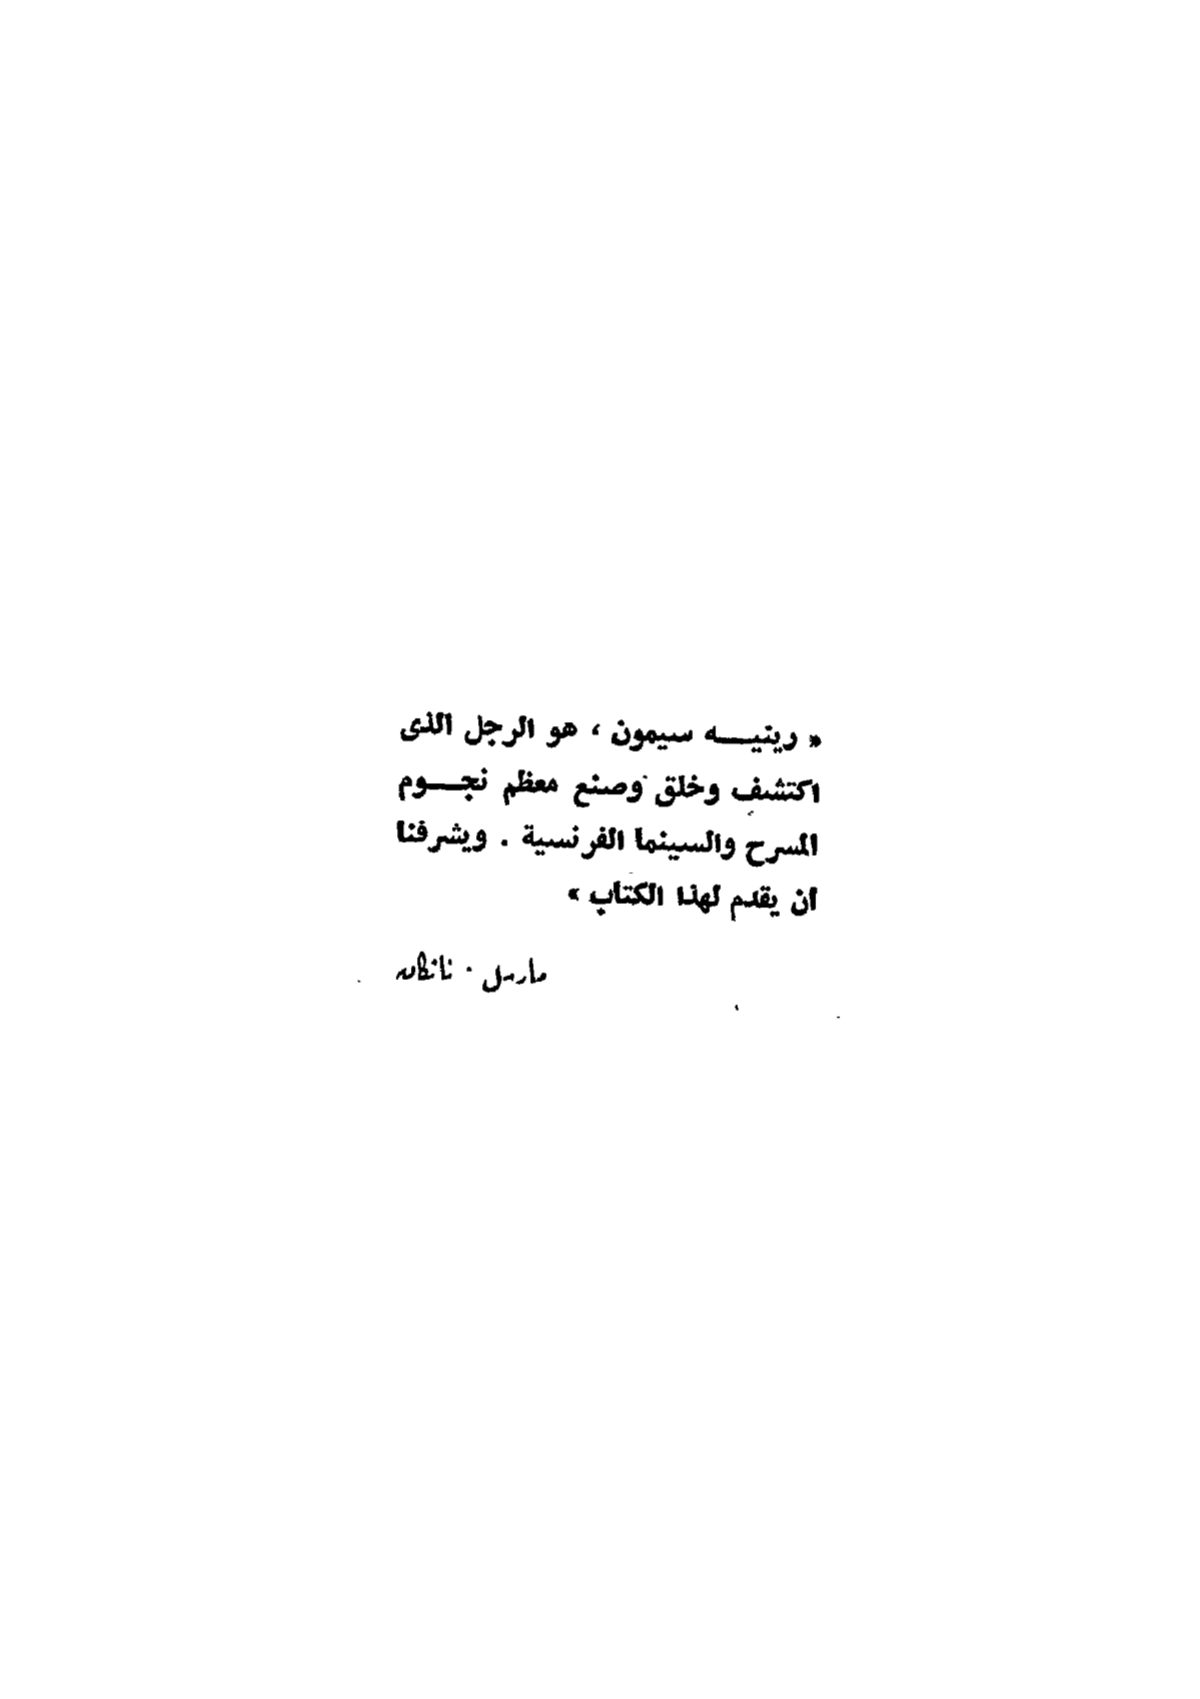 « رينيـــه سيمون ، هو الرجل الذى
اكتشف وخلق وصنع معظم نجـــوم
المسرح والسينما الفرنسية . ويشرفنا
ان يقدم لهذا الكتاب »
مارسل .